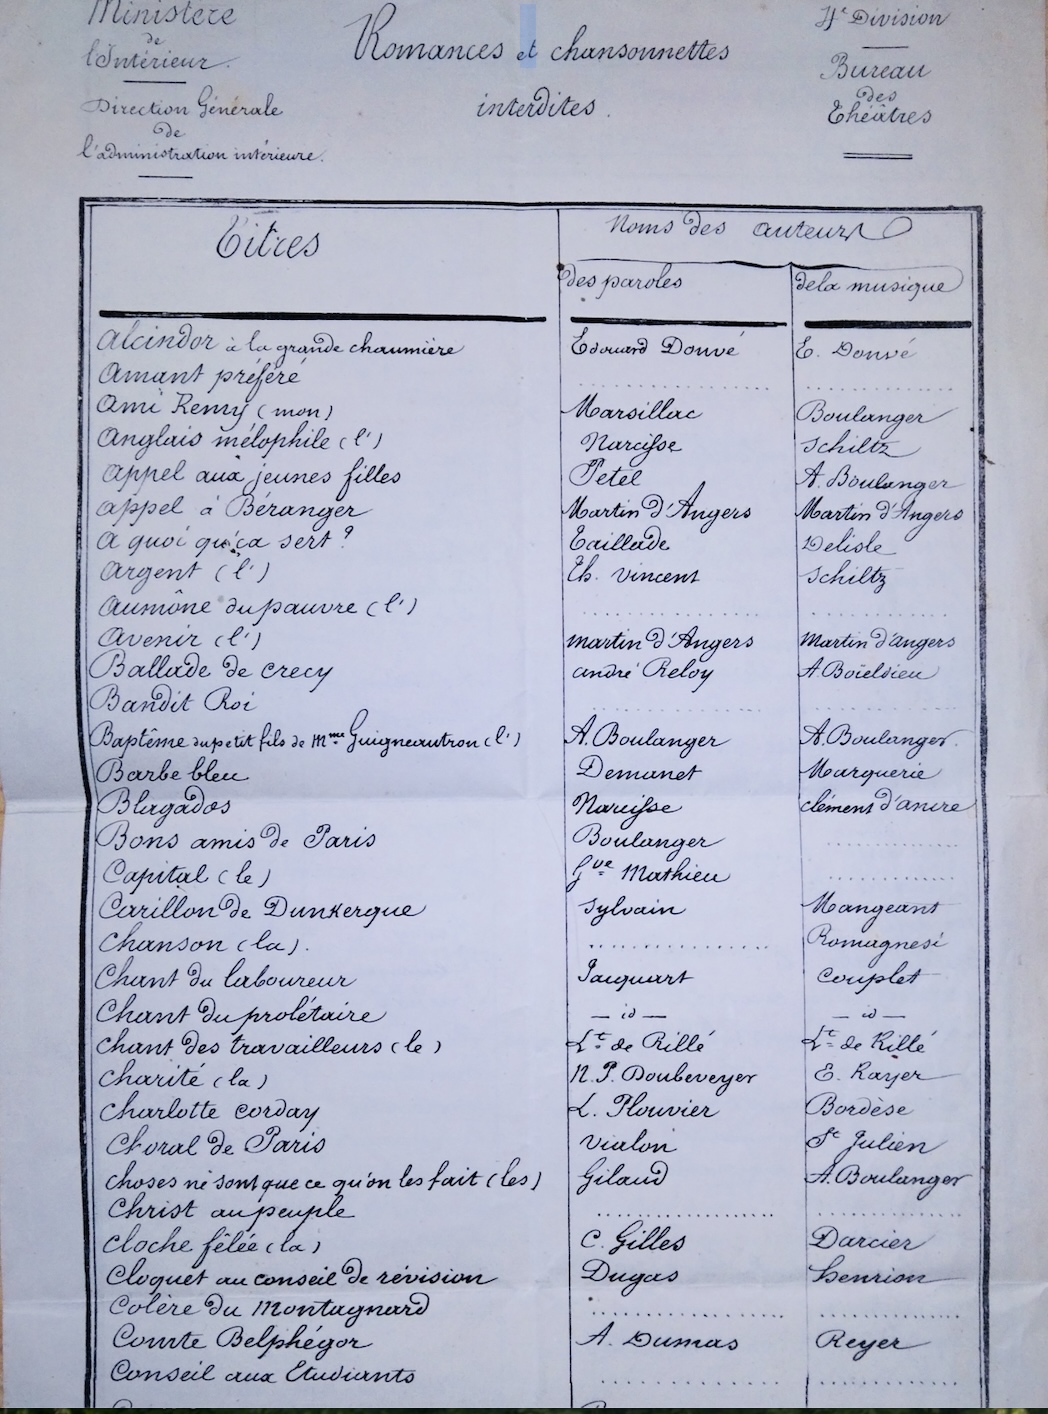 Ministère
de
l'Intérieur.
Direction Générale
de
l'administration intérieure.
Romances et chansonnettes
interdites.
4e Division
Bureau
des
Théâtres
Titres
Noms des auteurs
des paroles
de la musique
Alcindor à la grande chaumière Edouard Donvé E. Donvé
Amant préféré
Ami Remy (mon) Marsillac Boulanger
Anglais mélophile (l') Narcisse Schiltz
Appel aux jeunes filles Petel A. Boulanger
appel à Béranger Martin d'Angers Martin d'Angers
A quoi qu'ça sert ? Taillade Delisle
Argent (l') Th. Vincent Schiltz
Aumône du pauvre (l')
Avenir (l') martin d'Angers Martin d'angers
Ballade de crecy andré Reloy A. Boïeldieu
Bandit Roi
Baptême du petit fils de Mme Guigneautron (l') A. Boulanger A. Boulanger.
Barbe bleu Demanet Marquerie
Blagados Narcisse clément d'ancre
Bons amis de Paris Boulanger
Capital (le) Gve Mathieu
Carillon de Dunkerque Sylvain Mangeant
Chanson (la). Romagnesi
Chant du laboureur Jacquart Couplet
Chant du prolétaire — id — — id —
Chant des travailleurs (le) Lt de Rillé Lt de Rillé
Charité (la) N. P. Doubeveyer E. Rayer
Charlotte corday L. Plouvier Bordèse
Choral de Paris Vialon St Julien
choses ne sont que ce qu'on les fait (les) Giland A. Boulanger
Christ au peuple
Cloche fêlée (la) C. Gilles Darcier
Cloquet au conseil de révision Dugas henrion
Colère du Montagnard
Comte Belphégor A. Dumas Reyer
Conseil aux Etudiants